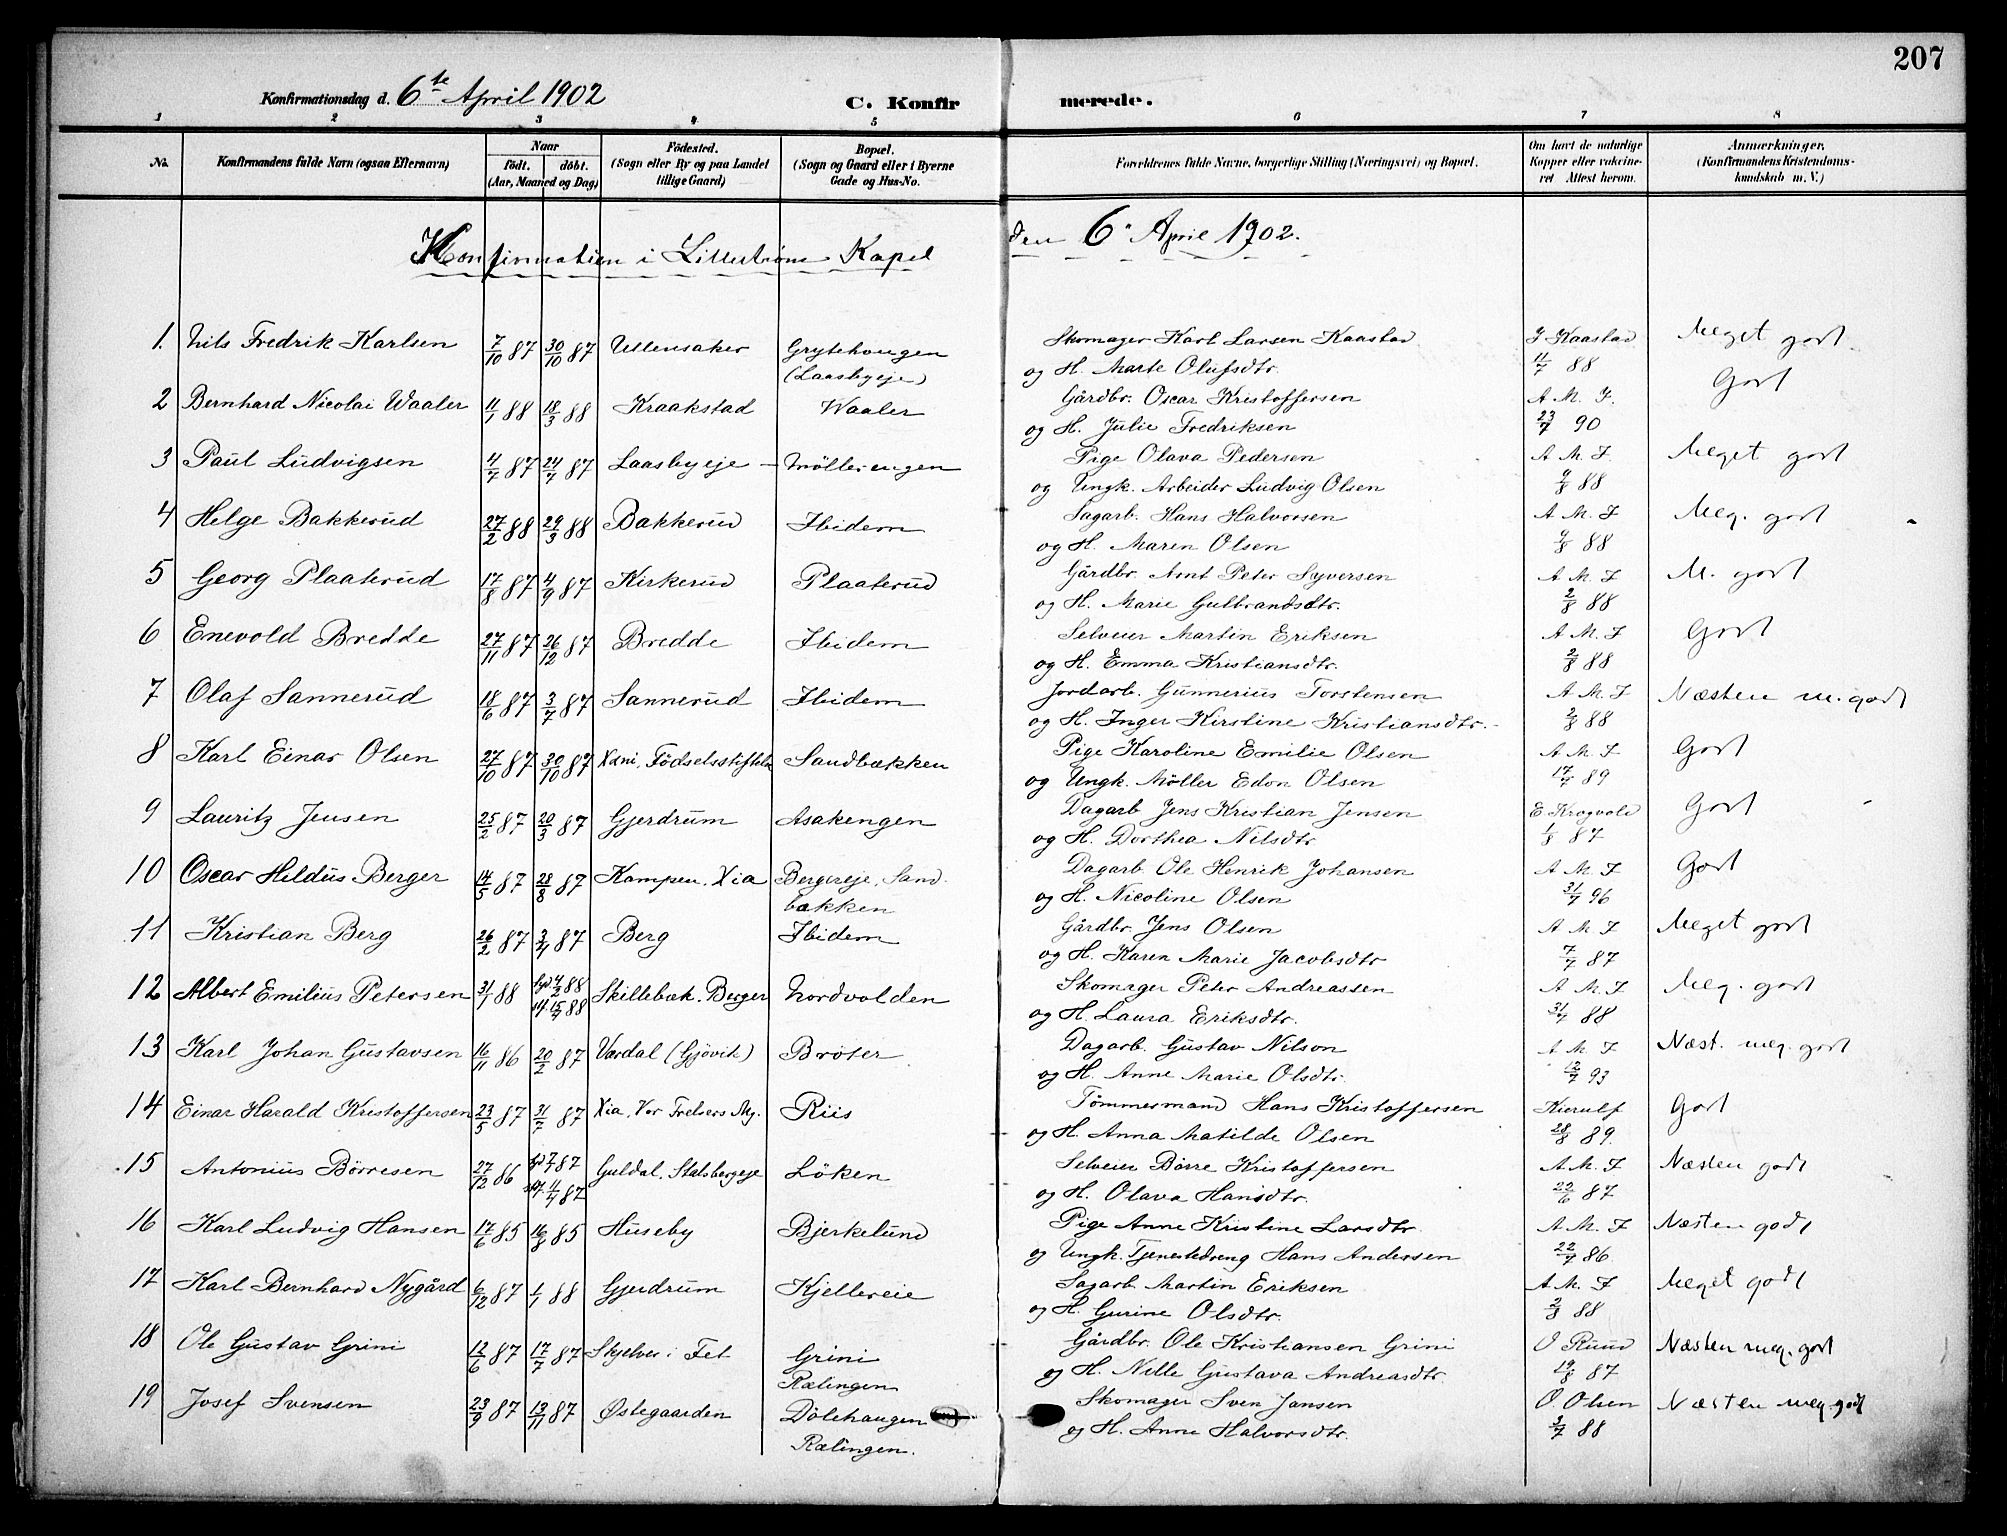 207
Konfirmationsdag d. 6te April 1902 C. Konfirmerede.
1 2 3 4 5 6 7 8
No. Konfirmandens fulde Navn (ogsaa Efternavn) Naar født. døbt. (Aar, Maaned og Dag) Fødested. (Sogn eller By og paa Landet tillige Gaard) Bopæl. (Sogn og Gaard eller i Byerne Gade og Hus-No. Forældrenes fulde Navne, borgerlige Stilling (Næringsvei) og Bopæl. Om havt de naturlige Kopper eller vakcineret Attest herom. Anmærkninger. (Konfirmandens Kristendomskundskab m. V.)
Konfirmation i Lillestrøm Kapel den 6. April 1902.
1. Nils Fredrik Karlsen 7/10 87 30/10 87 Ullensaker Grytehougen Skomager Karl Larsen Kaastad J Kaastad Meget godt
(Laasbyeje) og H. Marte Olufsdtr. 11/7 88
2 Bernhard Nicolai Waaler 11/1 88 18/3 88 Kraakstad Waaler Gårdbr. Oscar Kristoffersen A. M. J. Godt
og H. Julie Fredriksen 23/7 90
3 Paul Ludvigsen 4/7 87 24/7 87 Laasbyeje – Møllerengen Pige Olava Pedersen A. M. J. Meget godt
og Ungk. Arbeider Ludvig Olsen 9/8 88
4 Helge Bakkerud 27/2 88 29/3 88 Bakkerud Ibidem Sagarb. Hans Halvorsen A M. J Meg. godt
og H. Maren Olsen 9/8 88
5 Georg Plaaterud 17/8 87 4/9 87 Kirkerud Plaaterud Gårdbr. Arnt Peter Syversen A M. J M. godt
og H. Marie Gulbrandsdtr. 2/8 88
6 Enevold Bredde 27/11 87 26/12 87 Bredde Ibidem Selveier Martin Eriksen A M. J Godt
og H. Emma Kristiansdtr. 2/8 88
7 Olaf Sannerud 18/6 87 3/7 87 Sannerud Ibidem Jordarb. Gunnerius Torstensen A M. J Næsten m. godt
og H. Inger Kirstine Kristiansdtr. 2/8 88
8 Karl Einar Olsen 27/10 87 30/10 87 Xani, Fødselsstiftelse Sandbækken Pige Karoline Emilie Olsen A M. J Godt
og Ungk. Møller Edon Olsen 17/7 89
9 Lauritz Jensen 25/2 87 20/3 87 Gjerdrum Asakengen Dagarb Jens Kristian Jensen E Krogvold Godt
og H. Dorthea Nilsdtr. 1/8 87
10 Oscar Heldus Berger 14/5 87 28/8 87 Kampen. Xia Bergereje, Sand- Dagarb Ole Henrik Johansen A. M J Godt
bækken og H. Nicoline Olsen 31/7 96
11 Kristian Berg 26/2 87 3/4 87 Berg Ibidem Gårdbr. Jens Olsen A M J Meget godt
og H. Karen Marie Jacobsdtr 7/7 87
12 Albert Emilius Petersen 31/1 88 4/2 88 Skillebæk. Berger Nordvolden Skomager Peter Andreassen A M J Meg. godt
15/4 88 og H. Laura Eriksdtr. 31/7 88
13 Karl Johan Gustavsen 16/11 86 20/2 87 Vardal (Gjøvik) Brøter Dagarb. Gustav Nilson A M J Næst. meg. godt
og H. Anne Marie Olsdtr. 12/7 93
14 Einar Harald Kristoffersen 23/5 87 31/7 87 Xia, Vor Frelsers Mg. Riis Tømmermand Hans Kristoffersen Kierulf Godt
og H. Anna Matilde Olsen 28/8 89.
15 Antonius Børresen 27/12 86 87 Guldal. Stalsbergeje Løken Selveier Børre Kristoffersen A. M. J Næsten godt
11/4 87 og H. Olava Hansdtr. 22/6 87
16 Karl Ludvig Hansen 17/6 85 16/8 85 Huseby Bjerkelund Pige Anne Kristine Larsdtr A M. J Næsten godt
og Ungk. Tjenestedreng Hans Andersen 22/7 86
17 Karl Bernhard Nygård 6/12 87 1/1 88 Gjerdrum Kjellereie Sagarb Martin Eriksen A M. J Meget godt
og H. Gurine Olsdtr. 2/8 88
18 Ole Gustav Grini 12/6 87 17/7 87 Skjelver i Fet Grini Gårdbr. Ole Kristiansen Grini O Ruud Næsten meg. godt
Rælingen og H. Nille Gustava Andreasdtr. 19/8 87
19 Josef Svensen 23/9 87 13/11 87 Østegaarden Dølehaugen Skomager Sven Jansen O. Olsen Næsten meg. godt
Rælingen. og H. Anne Halvorsdtr. 3/7 88